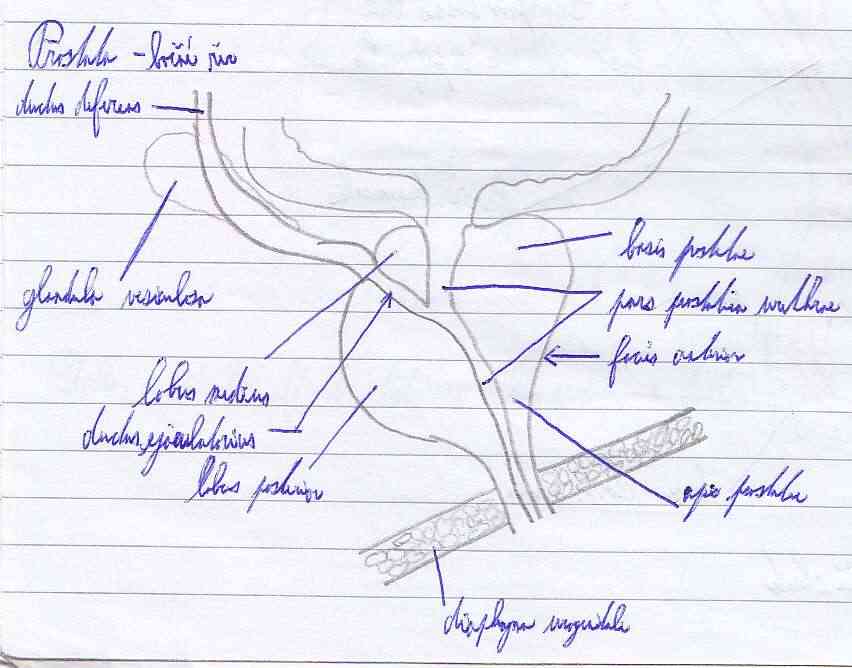 Prostata - boční řez
ductus deferens
glandula vesiculosa
basis prostatae
pars prostatica urethrae
facies anterior
lobus medius
ductus ejaculatorius
lobus posterior
apex prostatae
diaphragma urogenitale